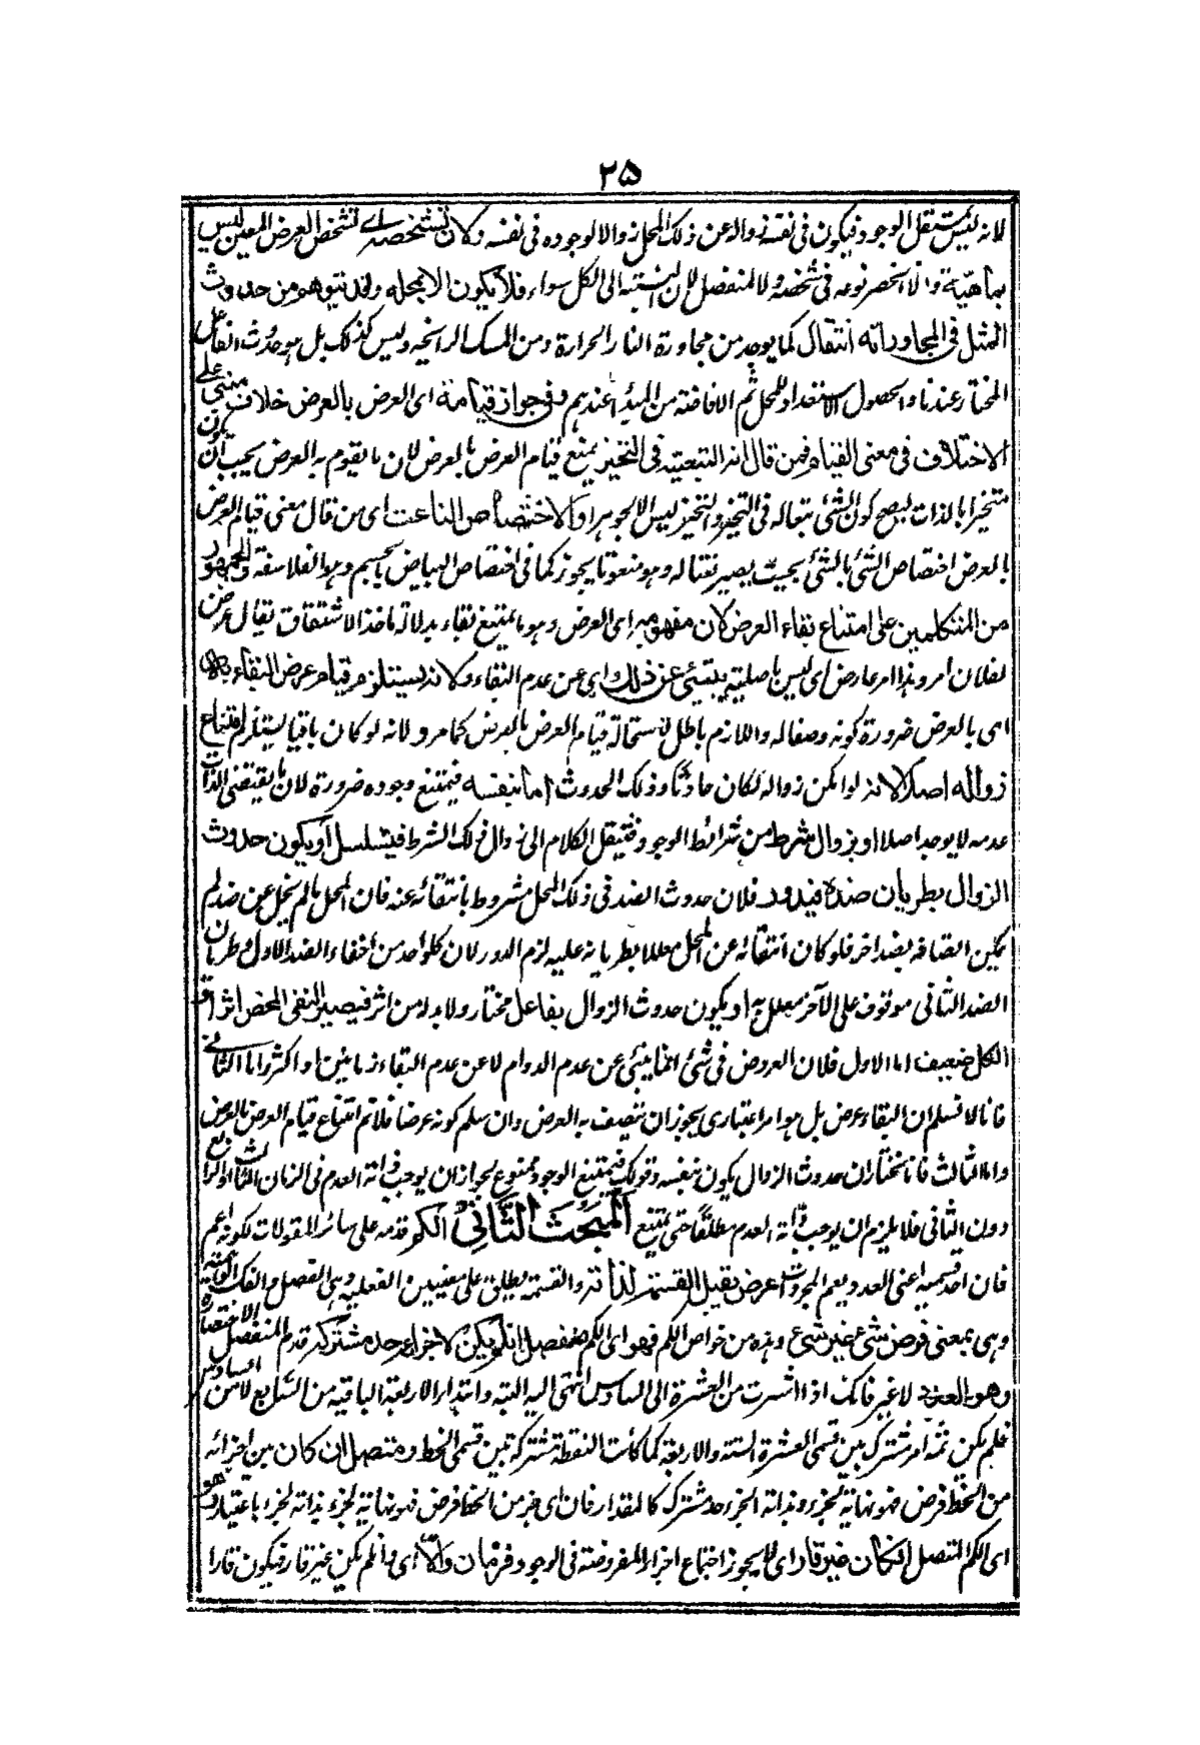 ٢٥
لانه ليس مستقل الوجود فيكون في نفسه زواله عن ذلك المحل زوالا لوجوده في نفسه وكان تشخصه اے تشخص العرض المعين ليس
بماهية والا انحصر نوعه في شخصه ولا لمنفصل لان نسبته الى الكل سواء فلا يكون الا بمحله وقد يتوهم من حدوث
المثل في المجاور انه انتقال كما يوجد من مجاورة النار الحرارة ومن المسك الرائحة وليس كذلك بل هو حدث الفاعل
المختار عندنا والحصول الاستعداد للمحل ثم الافاضة من المبدأ عندهم وفي جواز قيامه اى العرض بالعرض خلاف مبنى على
الاختلاف في معنى القيام فمن قال انه التبعية في التحيز يمنع قيام العرض بالعرض لان ما يقوم به العرض يجب ان يكون
متحيزا بالذات ليصح كون الشئ تبعا له في التحيز والمتحيز ليس الا الجوهر او الاختصاص الناعت اى من قال معنى قيام العرض
بالعرض اختصاص الشئ بالشئ بحيث يصير نعتا له وهو منعوتا يجوز كما في اختصاص البياض بالجسم وهو الفلاسفة والجمهور
من المتكلمين على امتناع بقاء العرض لان مفهومه اى العرض وهو ما يمتنع بقاءه بدلالة ماخذ الاشتقاق يقال عرض
لفلان امر وهذا امر عارض اى ليس باصلية ينبئ عن ذلك اى عن عدم البقاء ولانه يستلزم قيام عرض البقاء به
اى بالعرض ضرورة كونه وصفا له واللازم باطل لاستحالة قيام العرض بالعرض كما مر ولانه لو كان باقيا يستلزم امتناع
زواله اصلا لانه لو امكن زواله لكان حادثا وذلك الحدوث اما بنفسه فيمتنع وجوده ضرورة لان ما يقتضى الذات
عدمه لا يوجد اصلا او بزوال شرط من شرائط الوجود فينتقل الكلام الى زوال ذلك الشرط فيتسلسل او يكون حدوث
الزوال بطريان ضده فيدور فلان حدوث الضد في ذلك المحل مشروط بانتفائه عنه فان المحل ما لم يخل عن ضد لم
يمكن اتصافه بضد اخر فلو كان انتفائه عن المحل معللا بطريانه عليه لزم الدور لان كلا واحد من انتفاء الضد الاول وطريان
الضد الثاني موقوف على الآخر معلل به او يكون حدوث الزوال بفاعل مختار ولا بد له من اثر فيصير النفى المحض اثرا و
الكل ضعيف اما الاول فلان العروض في شئ انما ينبئ عن عدم الدوام لا عن عدم البقاء زمانين او اكثر واما الثاني
فانا لا نسلم ان البقاء عرض بل هو امر اعتبارى يجوز ان يتصف به العرض وان سلم كونه عرضا فلا تم امتناع قيام العرض بالعرض
واما الثالث فانا نختار ان حدوث الزوال يكون بنفسه وقولك فيمتنع الوجود ممنوع لجواز ان يوجب ذاته العدم في الزمان الثالث او الرابع
دون الثاني فلا يلزم ان يوجب ذاته العدم مطلقا حتى يمتنع المبحث الثاني الكم قدمه على سائر المقولات لكونه اعم
فان احد قسميه اعنى العدد يعم المجردات عرض يقبل القسمة لذاته والقسمة يطلق على معنيين الفعلية وهى الفصل والفك والوهمية
وهى بمعنى فرض شئ غير شئ وهذه من خواص الكم فهو اى الكم منفصل ان لم يكن لاجزائه حد مشترك قدم المنفصل لاختصاره
وهو العدد لا غير فانك اذا اشرت من العشرة الى السادس انتهى اليه الستة وابتداء الاربعة الباقية من السابع لا من السادس
فلم يكن ثمه امر مشترك بين قسمى العشرة الستة والاربعة كما كانت النقطة مشتركة بين قسمى الخط ومتصل ان كان بين اجزائه
حد مشترك كالمقدار فان اى جزء من الخط فرض فهو نهاية لجزء وبداية لجزء باعتبار وهو
اى الكم المتصل ان كان غير قار اى لا يجوز اجتماع اجزائه المفروضة في الوجود فزمان والا اى وان لم يكن غير قار فيكون قارا